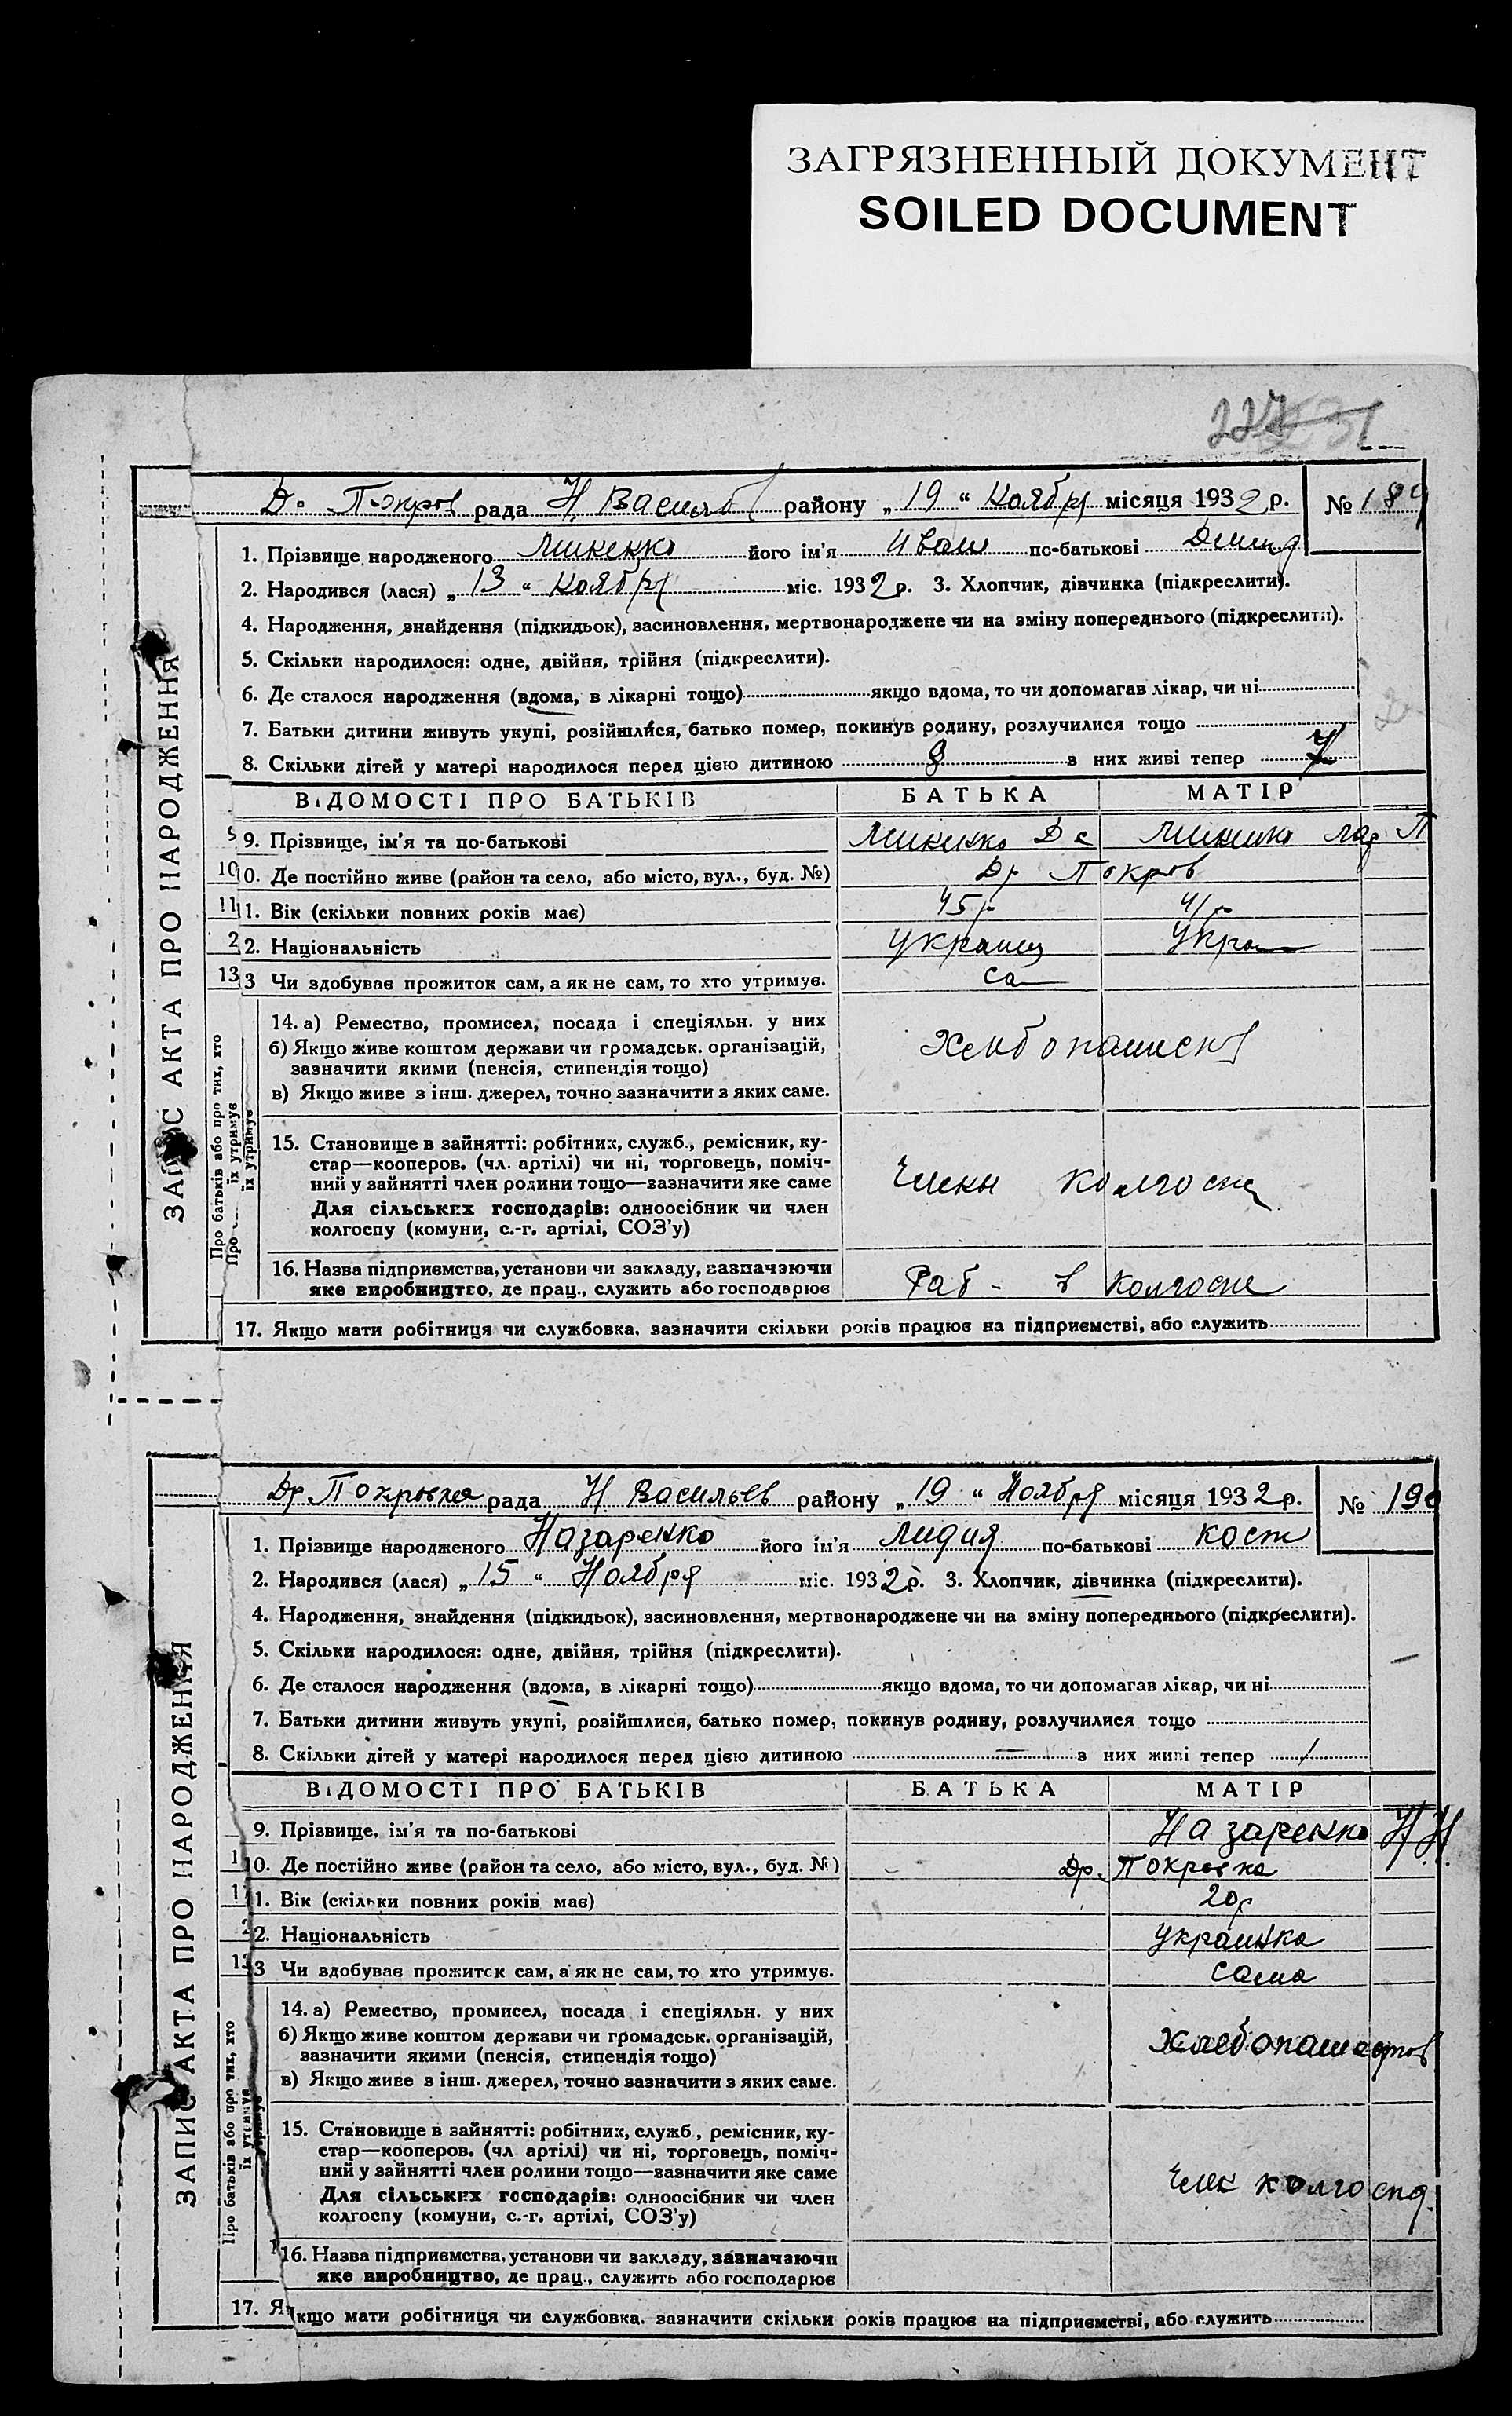 ЗАГРЯЗНЕННЫЙ ДОКУМЕНТ
SOILED DOCUMENT
227
ЗАПИС АКТА ПРО НАРОДЖЕННЯ
Др Покров рада Н Васильев району „19“ Ноября місяця 1932 р. № 189
1. Прізвище народженого його ім'я Иван по-батькові
2. Народився (лася) „13“ Ноября міс. 1932 р. 3. Хлопчик, дівчинка (підкреслити).
4. Народження, знайдення (підкидьок), засиновлення, мертвонароджене чи на зміну попереднього (підкреслити).
5. Скільки народилося: одне, двійня, трійня (підкреслити).
6. Де сталося народження (вдома, в лікарні тощо) якщо вдома, то чи допомагав лікар, чи ні
7. Батьки дитини живуть укупі, розійшлися, батько помер, покинув родину, розлучилися тощо
8. Скільки дітей у матері народилося перед цією дитиною 8 з них живі тепер
ВІДОМОСТІ ПРО БАТЬКІВ БАТЬКА МАТІР
9. Прізвище, ім'я та по-батькові
10. Де постійно живе (район та село, або місто, вул., буд. №) Др Покров
11. Вік (скільки повних років має) 45 41
12. Національність Украинец Укра
13 Чи здобуває прожиток сам, а як не сам, то хто утримує. са
Про батьків або про тих, хто їх утримує
14. а) Ремество, промисел, посада і спеціяльн. у них
б) Якщо живе коштом держави чи громадськ. організацій,
зазначити якими (пенсія, стипендія тощо)
в) Якщо живе з інш. джерел, точно зазначити з яких саме.
15. Становище в зайнятті: робітник, служб., ремісник, ку-
стар—кооперов. (чл. артілі) чи ні, торговець, поміч-
ний у зайнятті член родини тощо—зазначити яке саме
Для сільських господарів: одноосібник чи член
колгоспу (комуни, с.-г. артілі, СОЗ'у)
Член колгоспа
16. Назва підприємства, установи чи закладу, зазначаючи
яке виробництво, де прац., служить або господарює
Раб - в колгоспе
17. Якщо мати робітниця чи службовка, зазначити скільки років працює на підприємстві, або служить
ЗАПИС АКТА ПРО НАРОДЖЕННЯ
Др. Покровка рада Н Васильев району „19“ Ноября місяця 1932 р. № 190
1. Прізвище народженого Назаренко його ім'я Лидия по-батькові Кост
2. Народився (лася) „15“ Ноября міс. 1932 р. 3. Хлопчик, дівчинка (підкреслити).
4. Народження, знайдення (підкидьок), засиновлення, мертвонароджене чи на зміну попереднього (підкреслити).
5. Скільки народилося: одне, двійня, трійня (підкреслити).
6. Де сталося народження (вдома, в лікарні тощо) якщо вдома, то чи допомагав лікар, чи ні
7. Батьки дитини живуть укупі, розійшлися, батько помер, покинув родину, розлучилися тощо
8. Скільки дітей у матері народилося перед цією дитиною — з них живі тепер /
ВІДОМОСТІ ПРО БАТЬКІВ БАТЬКА МАТІР
9. Прізвище, ім'я та по-батькові Назаренко Н.Н.
10. Де постійно живе (район та село, або місто, вул., буд. №) Др. Покровка
11. Вік (скільки повних років має) 20
12. Національність Украинка
13 Чи здобуває прожиток сам, а як не сам, то хто утримує. сама
Про батьків або про тих, хто їх утримує
14. а) Ремество, промисел, посада і спеціяльн. у них
б) Якщо живе коштом держави чи громадськ. організацій,
зазначити якими (пенсія, стипендія тощо)
в) Якщо живе з інш. джерел, точно зазначити з яких саме.
15. Становище в зайнятті: робітник, служб., ремісник, ку-
стар—кооперов. (чл артілі) чи ні, торговець, поміч-
ний у зайнятті член родини тощо—зазначити яке саме
Для сільських господарів: одноосібник чи член
колгоспу (комуни, с.-г. артілі, СОЗ'у)
Член колгоспа.
16. Назва підприємства, установи чи закладу, зазначаючи
яке виробництво, де прац., служить або господарює
17. Якщо мати робітниця чи службовка, зазначити скільки років працює на підприємстві, або служить